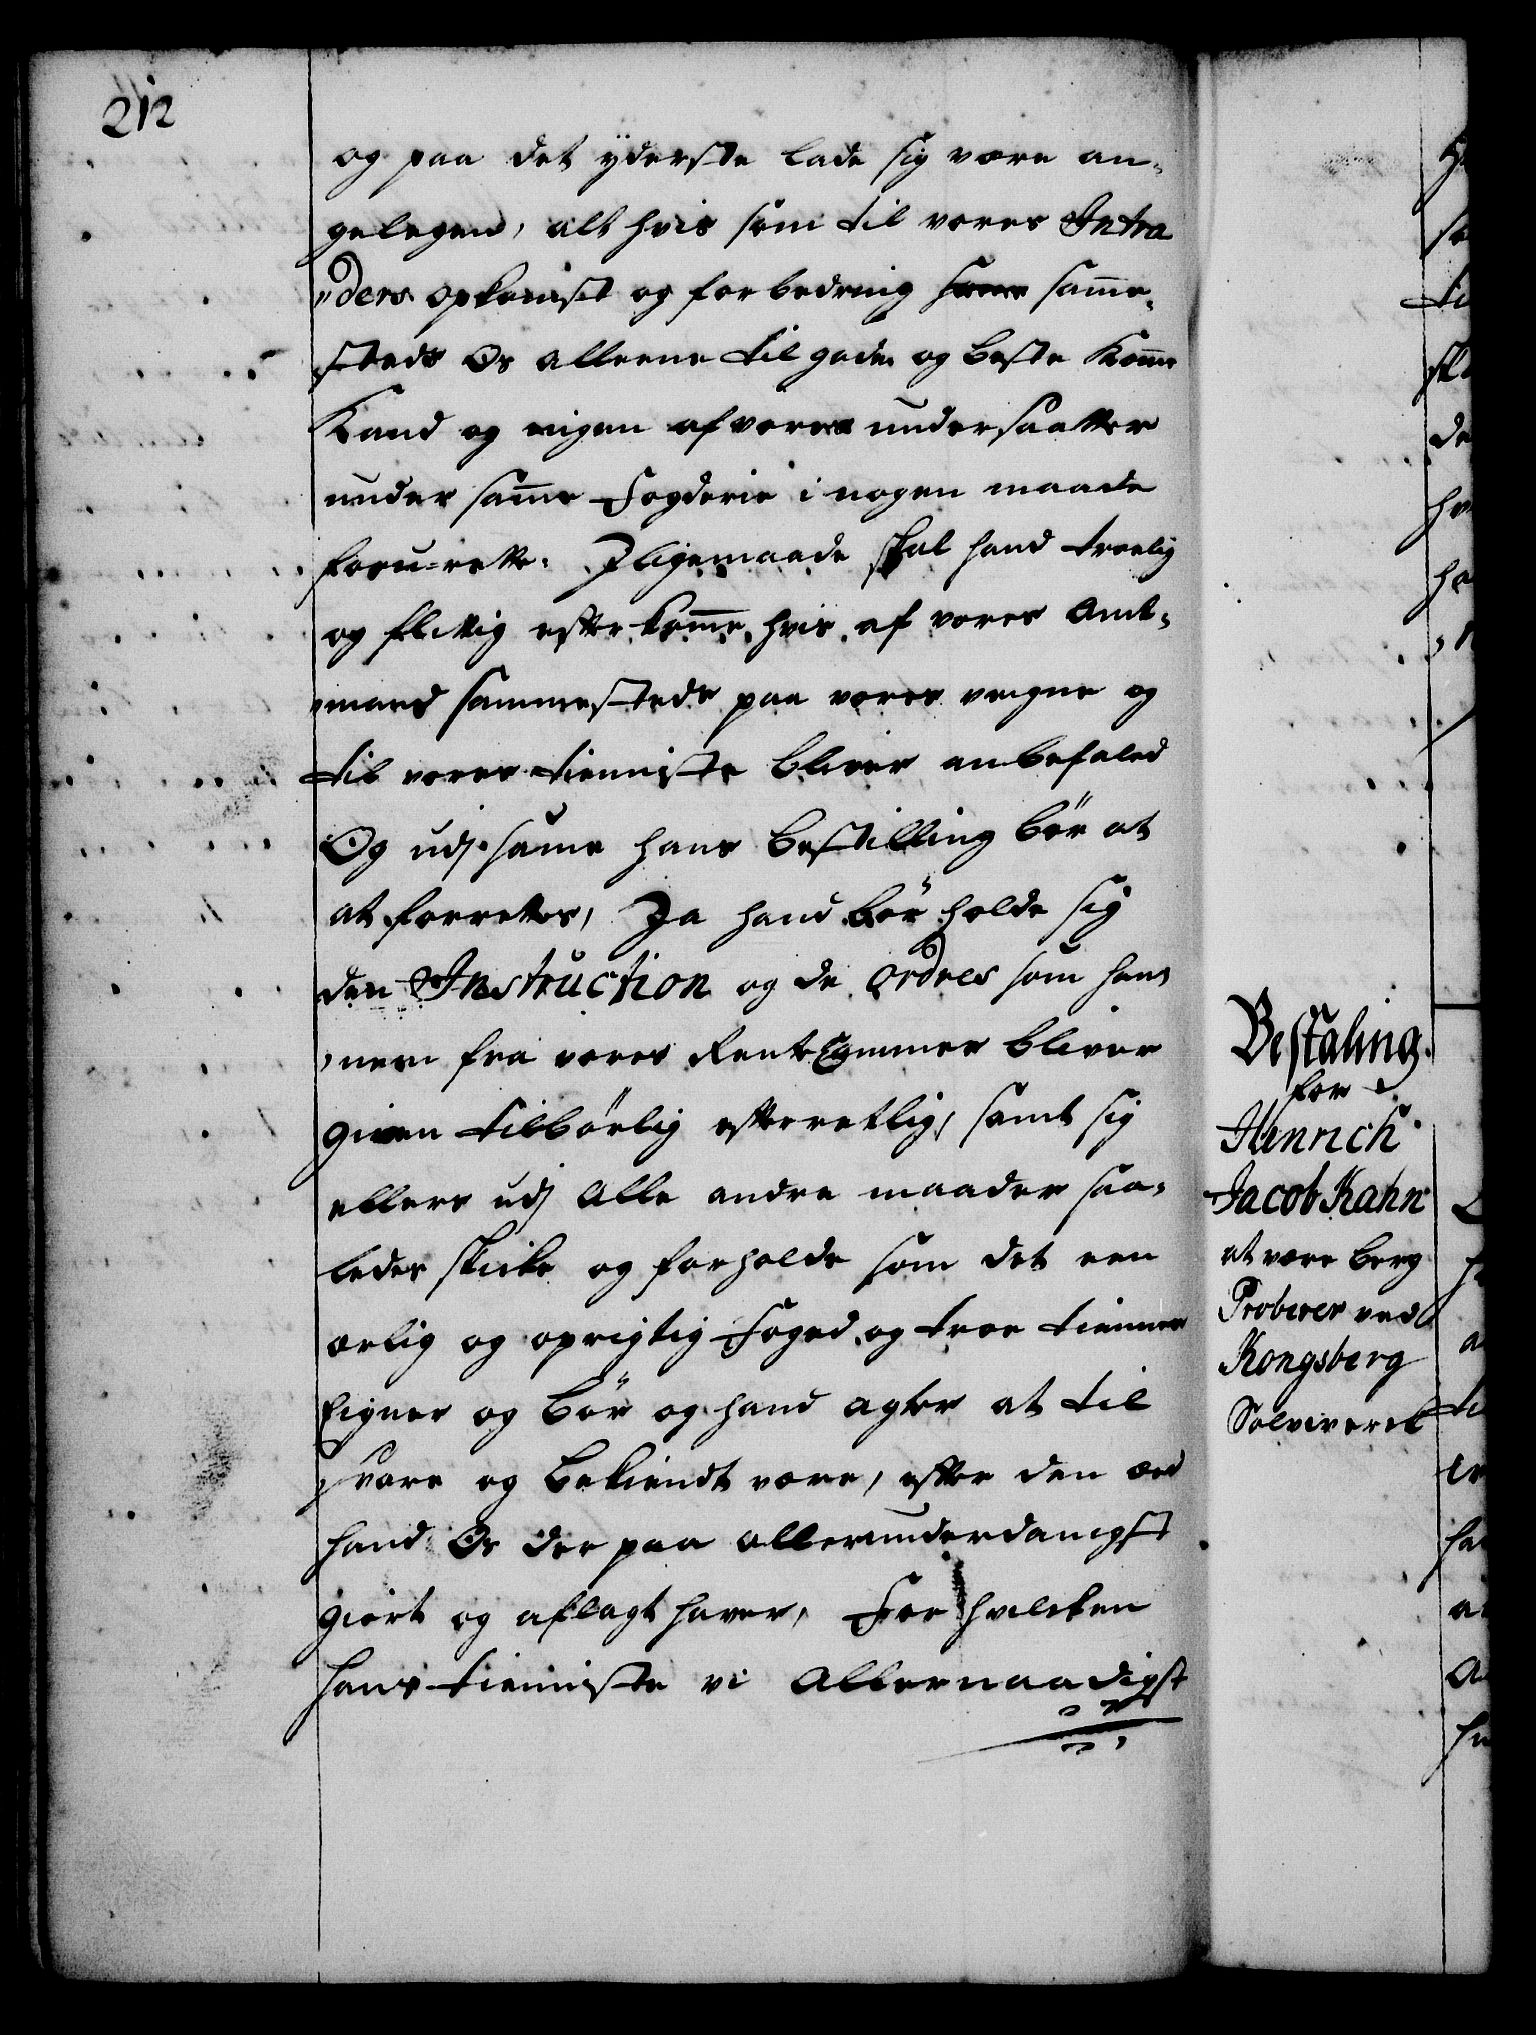 212
og paa det yderste lade sig være an-
gelegen, alt hvis som til vores Intra
"ders opkomst og forbedring samme-
steds Os alleene til gode og beste komme
Kand og ingen af vores undersaatter
under samme Fogderie i nogen maade
foru-rette. Jligemaade skal hand troelig
og flittig efterkomme, hvis af vores Amt-
mand sammesteds paa vores veigne og
til vores tienniste bliver anbefaled
Og udj samme hans bestilling bör at
at forrettes, Ja hand bör holde sig
den Instruction og de ordres som han
"nem fra vores RentKammer bliver
given tilbörlig efterretlig, samt sig
ellers udj Alle andre maader saa-
ledes skicke og forholde som det een
ærlig og oprigtig Foged og troe tienner
Eigner og bör og hand agter at til
svare og bekiendt være, efter den æed
hand Os der paa allerunderdanigst
giort og aflagt haver, For hvilcken
hans tienniste vi Allernaadigst
Bestaling
for
Henrich
Jacob Kahn
at være berg
Proberer ved
Kongsberg
Sølvverck